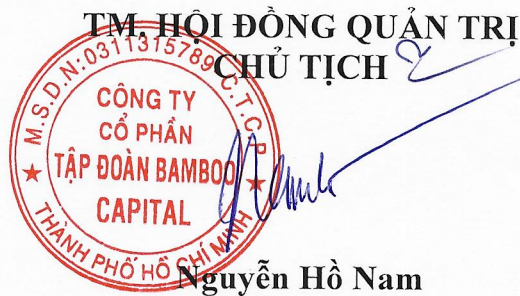 TM. HỘI ĐỒNG QUẢN TRỊ
CHỦ TỊCH
M.S.D.N:0311315789-C.T.C.P
CÔNG TY
CỔ PHẦN
TẬP ĐOÀN BAMBOO
CAPITAL
THÀNH PHỐ HỒ CHÍ MINH
Nguyễn Hồ Nam